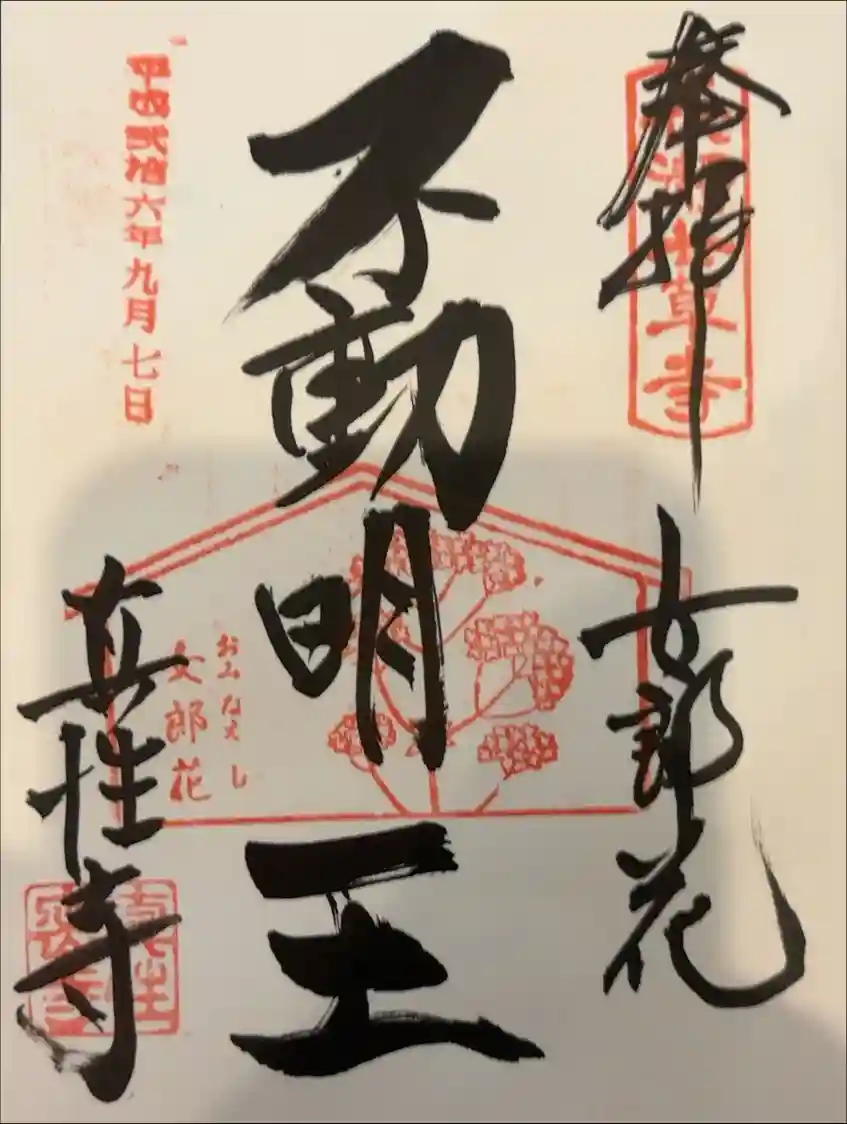 奉拝
秋の七草寺
女郎花
不動明王
おみなえし
女郎花
平成弐拾六年九月七日
真性寺